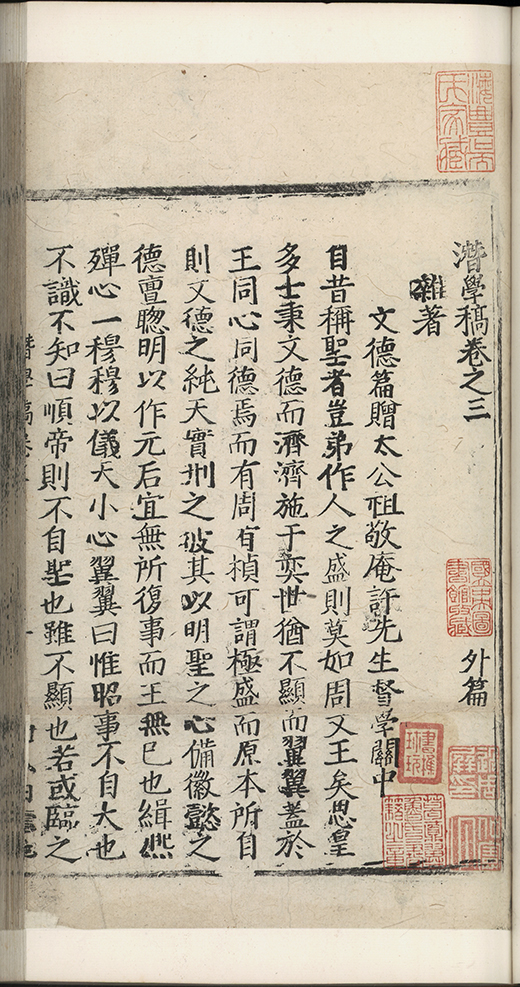 潛學稿卷之三 外篇
雜著
文德篇贈太公祖敬庵許先生督學關中
自昔稱聖者豈弟作人之盛則莫如周文王矣思皇
多士秉文德而濟濟施于奕世猶不顯而翼翼蓋於
王同心同德焉而有周有楨可謂極盛而原本所自
則文德之純天實刑之彼其以明聖之心備徽懿之
德亶聰明以作元后宜無所復事而王無已也緝熙
殫心一穆穆以儀天小心翼翼曰惟昭事不自大也
不識不知曰順帝則不自聖也雖不顯也若或臨之
國立中央圖書館收藏